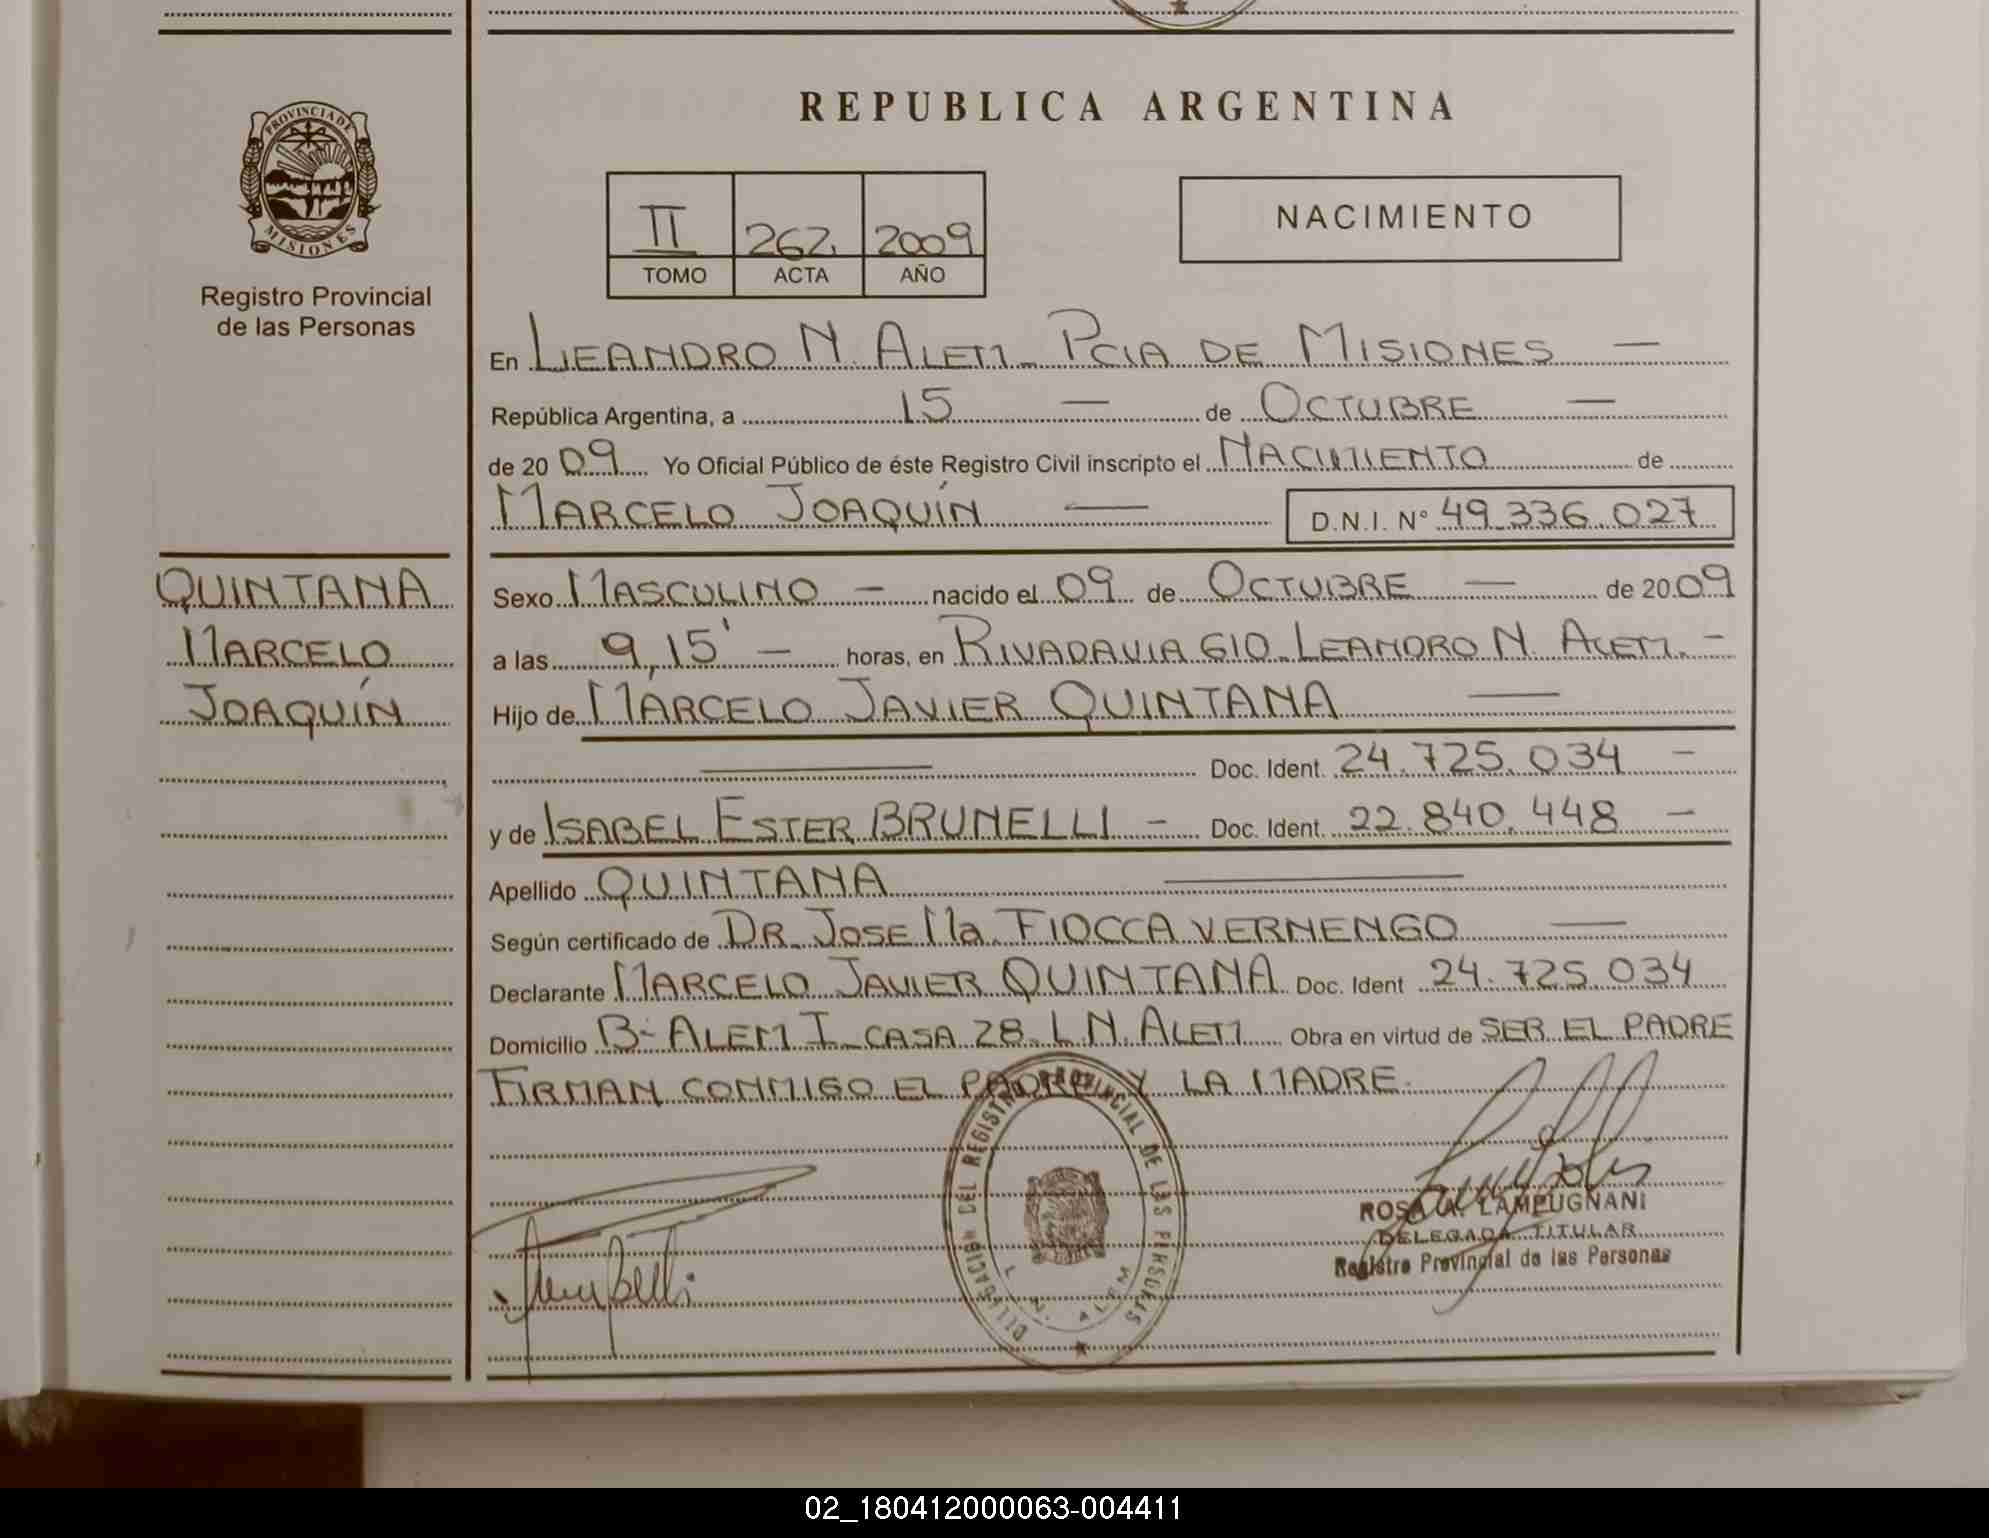 REPUBLICA ARGENTINA
PROVINCIA DE MISIONES
Registro Provincial
de las Personas
II 262. 2009
TOMO ACTA AÑO
NACIMIENTO
En LEANDRO N. ALEM - PCIA DE MISIONES —
República Argentina, a 15 — de OCTUBRE —
de 20 09 Yo Oficial Público de éste Registro Civil inscripto el NACIMIENTO de
MARCELO JOAQUÍN — D.N.I. N° 49.336.027
QUINTANA
MARCELO
JOAQUÍN
Sexo MASCULINO — nacido el 09 de OCTUBRE — de 20 09
a las 9,15' — horas, en RIVADAVIA 610 - LEANDRO N. ALEM. -
Hijo de MARCELO JAVIER QUINTANA —
— Doc. Ident. 24.725.034 -
y de ISABEL ESTER BRUNELLI - Doc. Ident. 22.840.448 -
Apellido QUINTANA —
Según certificado de DR. JOSE Ma FIOCCA VERNENGO —
Declarante MARCELO JAVIER QUINTANA Doc. Ident 24.725.034
Domicilio B- ALEM I - CASA 28. L.N. ALEM Obra en virtud de SER EL PADRE
FIRMAN CONMIGO EL PADRE Y LA MADRE.
DELEGACION DEL REGISTRO PROVINCIAL DE LAS PERSONAS
L. N. ALEM
ROSA A. LAMPUGNANI
DELEGADA TITULAR
Registro Provincial de las Personas
02_180412000063-004411